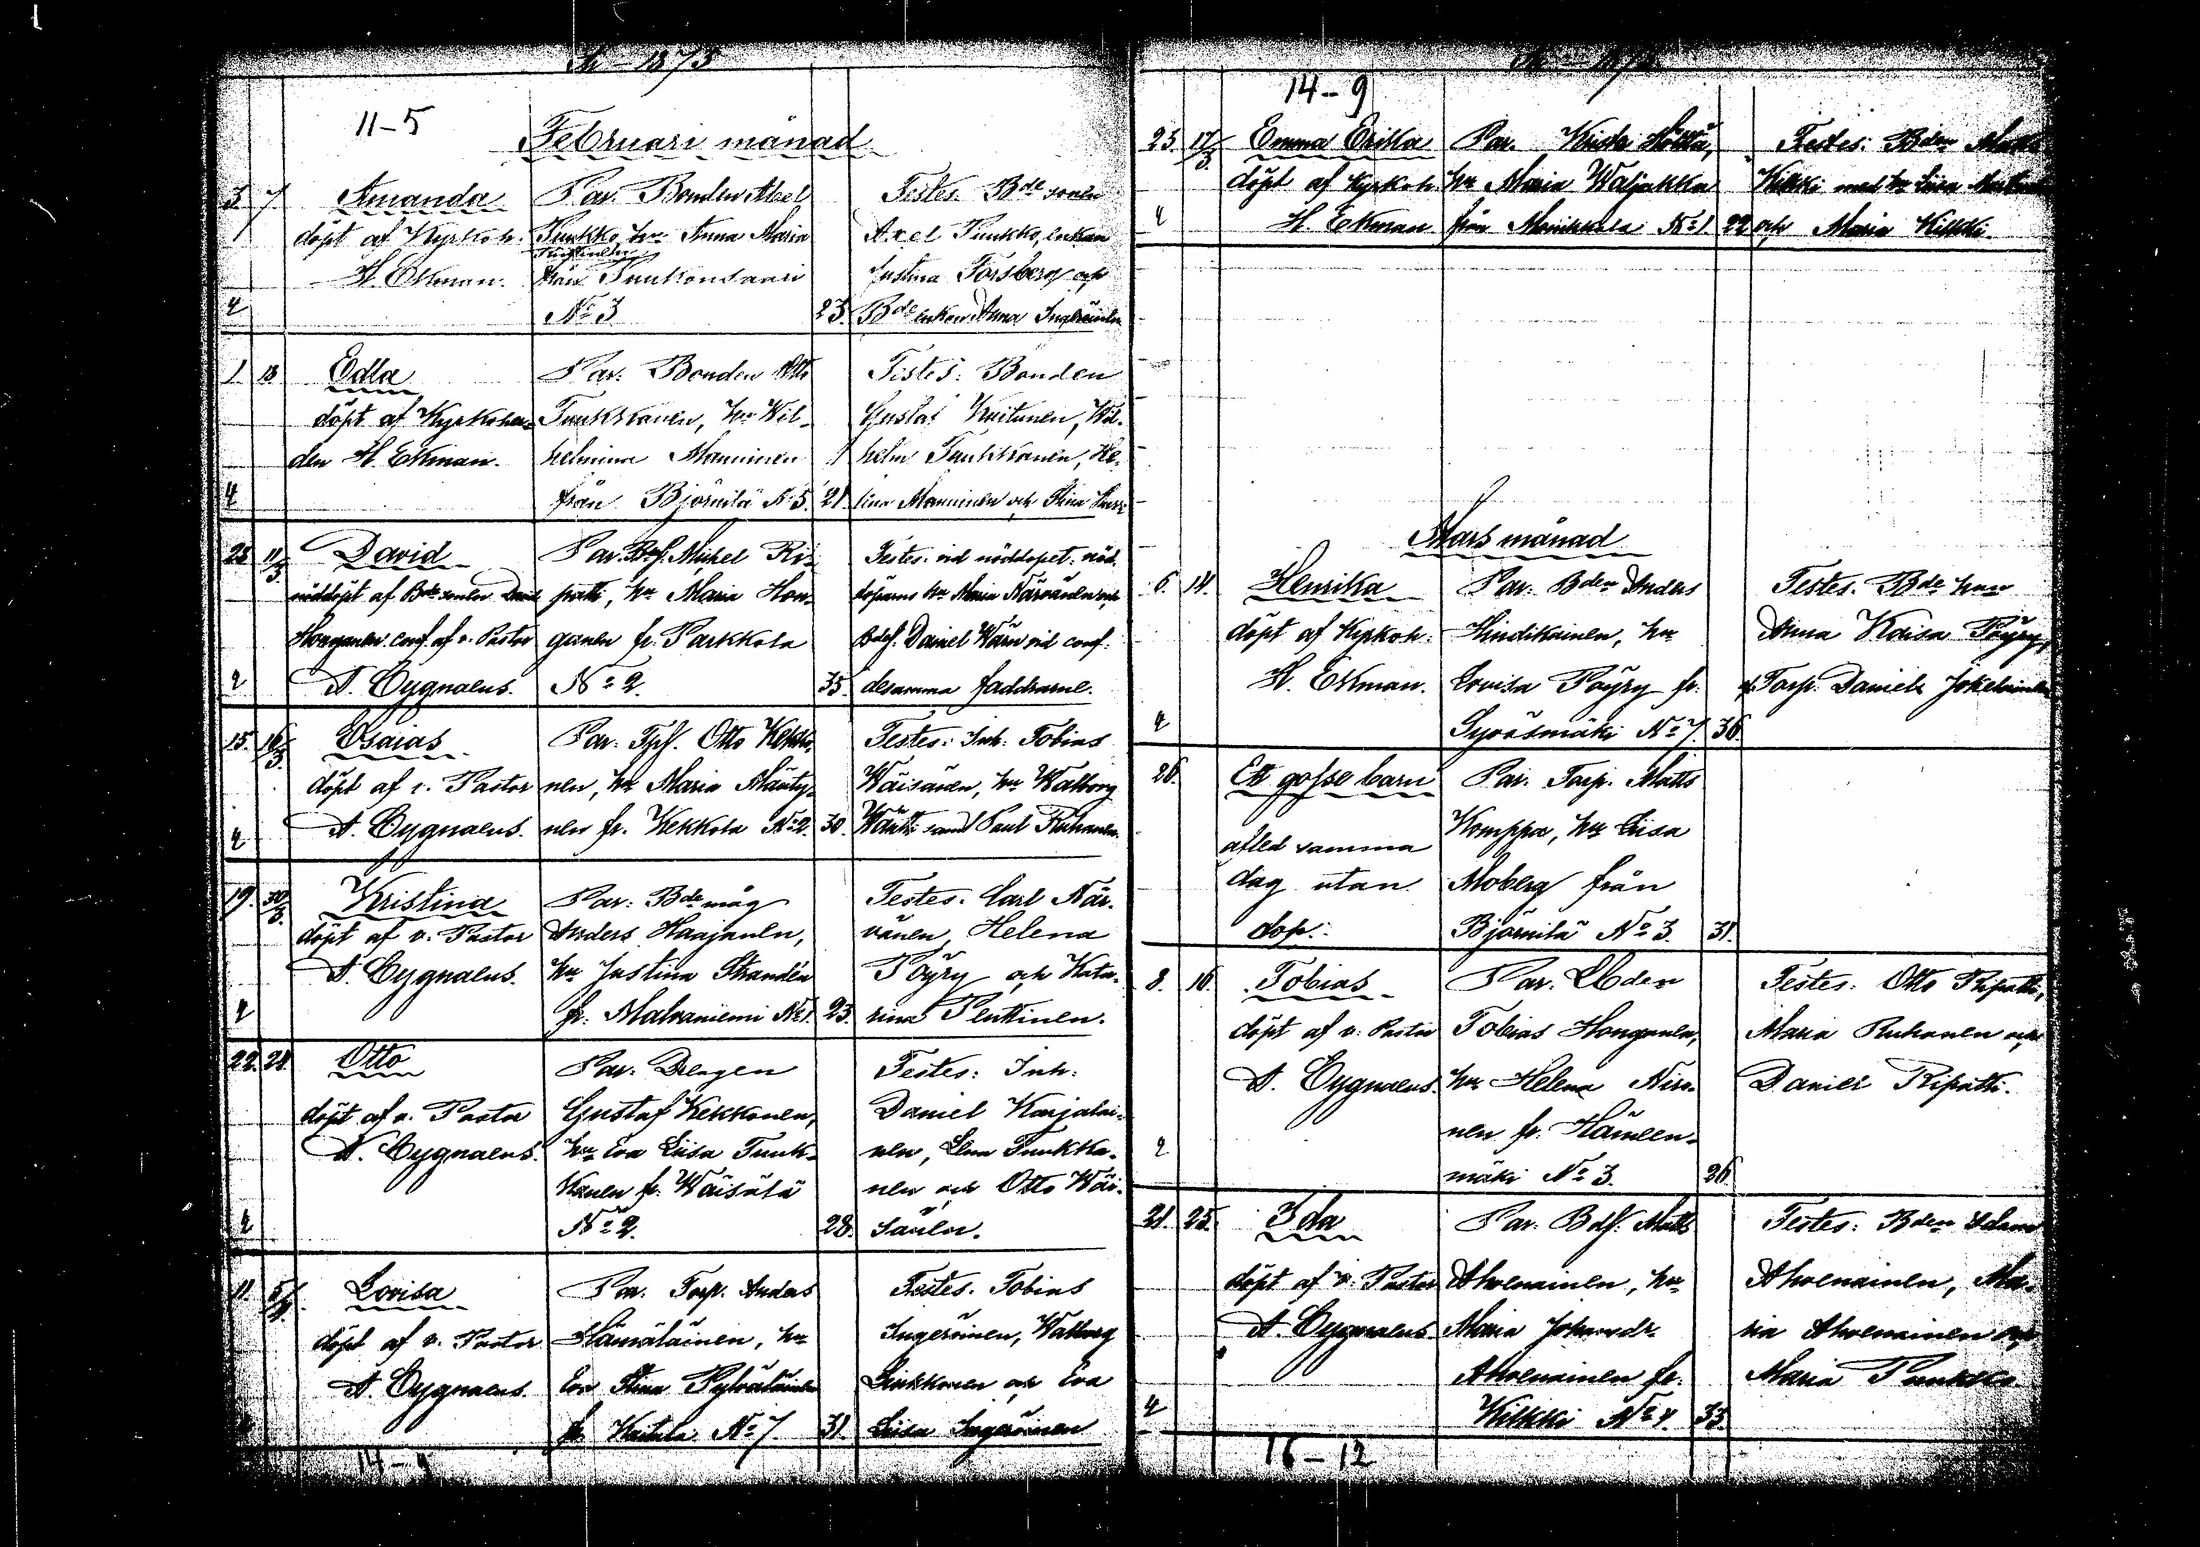 År 1875
11-5
Februari månad
3. 7. Amanda
döpt af Kyrkoh.
H. Ekman.
4
Par. Bonden Abel
Punkko, hu Anna Maria
från Punkonsaari
No 3
23.
Testes. Bde sonen
Axel Punkko, enkan
Justina Forsberg och
Bde enkan Anna Ingeröinen
1 18 Edla
döpt af Kyrkoher-
den H. Ekman.
4
Par: Bonden Otto
Tuukkanen, hu Wil-
helmina Manninen
från Björnilä No 5.
21.
Testes: Bonden
Gustaf Kuitunen, Wil-
helm Tuukkanen, He-
lina Manninen och Stina
28 11/3 David
nöddöpt af Bde sonen David
Honganen conf. af v. Pastor
A. Cygnaeus.
2
Par. Bdf. Mickel Ri-
patti, hu Maria Hon-
ganen fr. Parkkola
No 2.
35.
Testes. vid nöddopet: nöd.
döparens hu Maria Närvänen och
Bdf. Daniel vid conf.
desamma faddrarne.
15. 16/3. Esaias
döpt af v. Pastor
A. Cygnaeus.
4
Par: Otto Kekko-
nen, hu Maria Mänty-
nen fr. Kekkola No 2.
30.
Testes: Inh. Tobias
Wäisänen, hu Walborg
samt Paul Ruhanen.
19. 30/3. Kristina
döpt af v. Pastor
A. Cygnaeus.
4
Par: Bde måg
Anders Haajanen,
hu Justina Strandén
fr. Malvaniemi No 1.
23.
Testes. Carl När-
vänen, Helena
Pöyry och Kata-
rina Penttinen.
22. 28. Otto
döpt af v. Pastor
A. Cygnaeus.
4
Par: Drengen
Gustaf Kekkonen,
hu Eva Lisa Tuuk-
kanen fr. Wäisälä
No 2.
28.
Testes: Inh:
Daniel Karjalai-
nen, Lena Tuukka-
nen och Otto Wäi-
sänen.
11. 5/4. Lovisa
döpt af v. Pastor
A. Cygnaeus.
Par. Torp. Anders
Hämäläinen, hu
Eva Stina Pylväläinen
fr. Kaitala No 7.
31.
Testes. Tobias
Ingeröinen, Walborg
Liukkonen och Eva
Liisa Ingeröinen
14-9
År 1875
14-9
25. 17/3 Emma Erika
döpt af Kyrkoh.
H. Ekman
4
Par. Krister Hölttä,
hu Maria Waljakka
från Monikkala No 1
22
Testes: Bden Matts
Kilkki med hu Liisa
och Maria Kilkki.
Mars månad
6. 14. Henrika
döpt af Kyrkoh:
H. Ekman.
4
Par: Bden Anders
Hindikainen, hu
Lovisa Pöyry fr.
Syväsmäki No 7.
36.
Testes. Bde hun
Anna Kaisa Pöyry,
Torp. Daniel Jokelainen
26. Ett gosse barn
afled samma
dag utan
dop.
Par. Torp. Matts
Komppa, hu Liisa
Moberg från
Björnilä No 3.
31.
8. 16. Tobias
döpt af v. Pastor
A. Cygnaeus.
2
Par. Lbden
Tobias Honganen,
hu Helena Niro-
nen fr. Hämeen-
mäki No 3.
26.
Testes. Otto Ripatti,
Maria Ruhanen och
Daniel Ripatti.
21. 25. Ida
döpt af v. Pastor
A. Cygnaeus.
4
Par. Bdf. Matts
Ahvenainen, hu
Maria Johansdr.
Ahvenainen fr.
Kilkki No 4.
33.
Testes. Bden Adam
Ahvenainen, Ma-
ria Ahvenainen och
Maria Punkko.
16-12